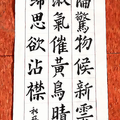 偏驚物候新雲
淑氣催黃鳥晴
歸思欲沾襟